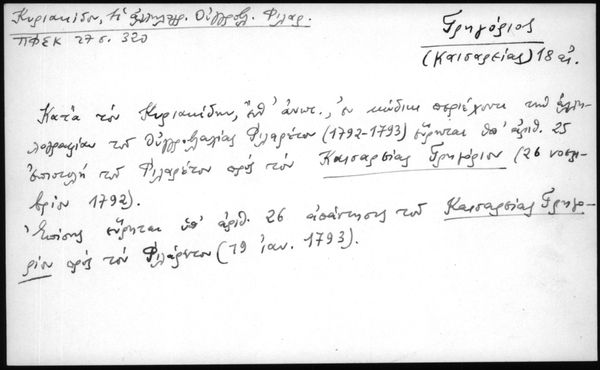 Κυριακίδου, Ἡ ἀλληλογρ. Οὐγγροβλ. Φιλαρ.
ΠΦΣΚ 27 σ. 320
Γρηγόριος
(Καισαρείας) 18 αἰ.
Κατὰ τὸν Κυριακίδην, ἔνθ' ἀνωτ., ἐν κώδικι περιέχοντι τὴν ἀλλη-
λογραφίαν τοῦ Οὐγγροβλαχίας Φιλαρέτου (1792-1793) εὕρηται ὑπ' ἀριθ. 25
ἐπιστολὴ τοῦ Φιλαρέτου πρὸς τὸν Καισαρείας Γρηγόριον (26 νοεμ-
βρίου 1792).
Ἐπίσης εὕρηται ὑπ' ἀριθ. 26 ἀπάντησις τοῦ Καισαρείας Γρηγο-
ρίου πρὸς τὸν Φιλάρετον (19 ἰαν. 1793).